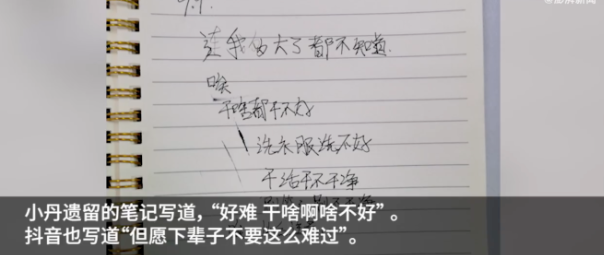 澎湃新闻
9.9.
唉
干啥都干不好
洗衣服洗不好
干活干不干净
小丹遗留的笔记写道，“好难 干啥啊啥不好”。
抖音也写道“但愿下辈子不要这么难过”。